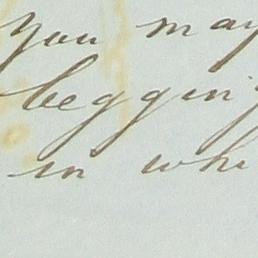 You may
begging
in whi